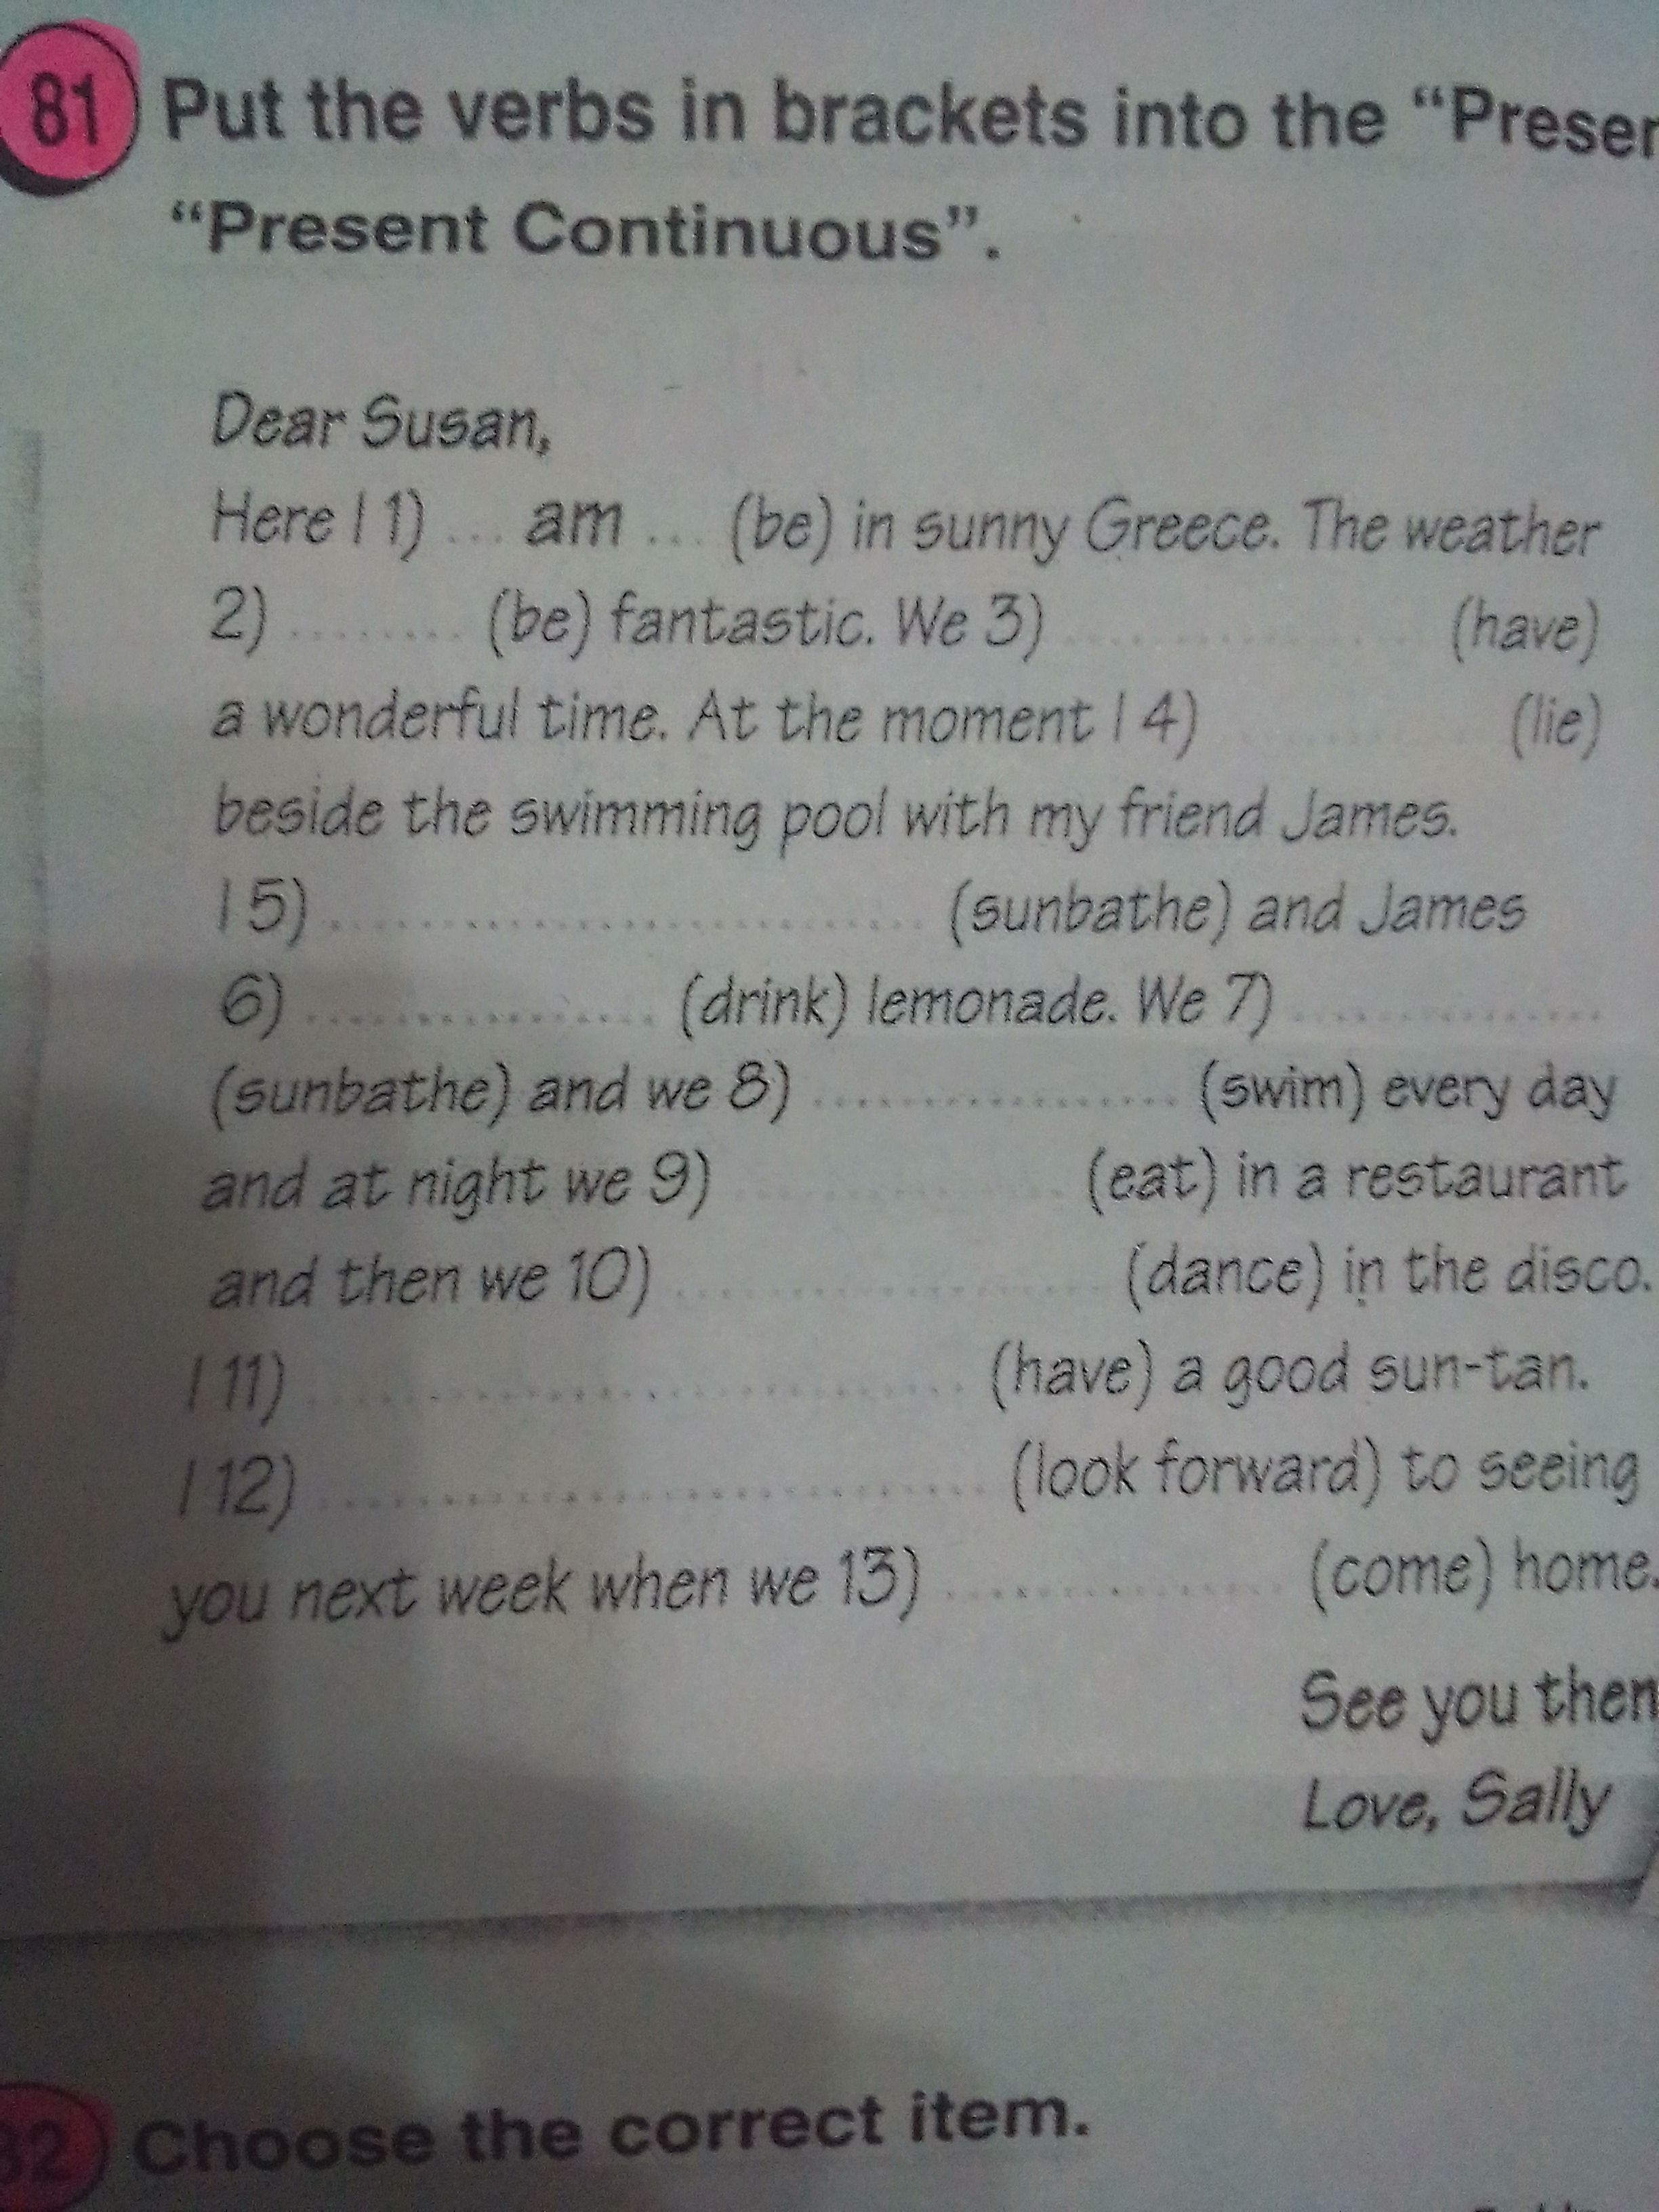 81 Put the verbs in brackets into the "Presen
"Present Continuous".
Dear Susan,
Here I 1) ... am ... (be) in sunny Greece. The weather
2) ........ (be) fantastic. We 3) .................... (have)
a wonderful time. At the moment I 4) ................ (lie)
beside the swimming pool with my friend James.
I 5) .............................. (sunbathe) and James
6) .................. (drink) lemonade. We 7) ................
(sunbathe) and we 8) ................... (swim) every day
and at night we 9) .................. (eat) in a restaurant
and then we 10) ....................... (dance) in the disco.
I 11) ................................. (have) a good sun-tan.
I 12) .................................. (look forward) to seeing
you next week when we 13) .................. (come) home.
See you then
Love, Sally
82 Choose the correct item.